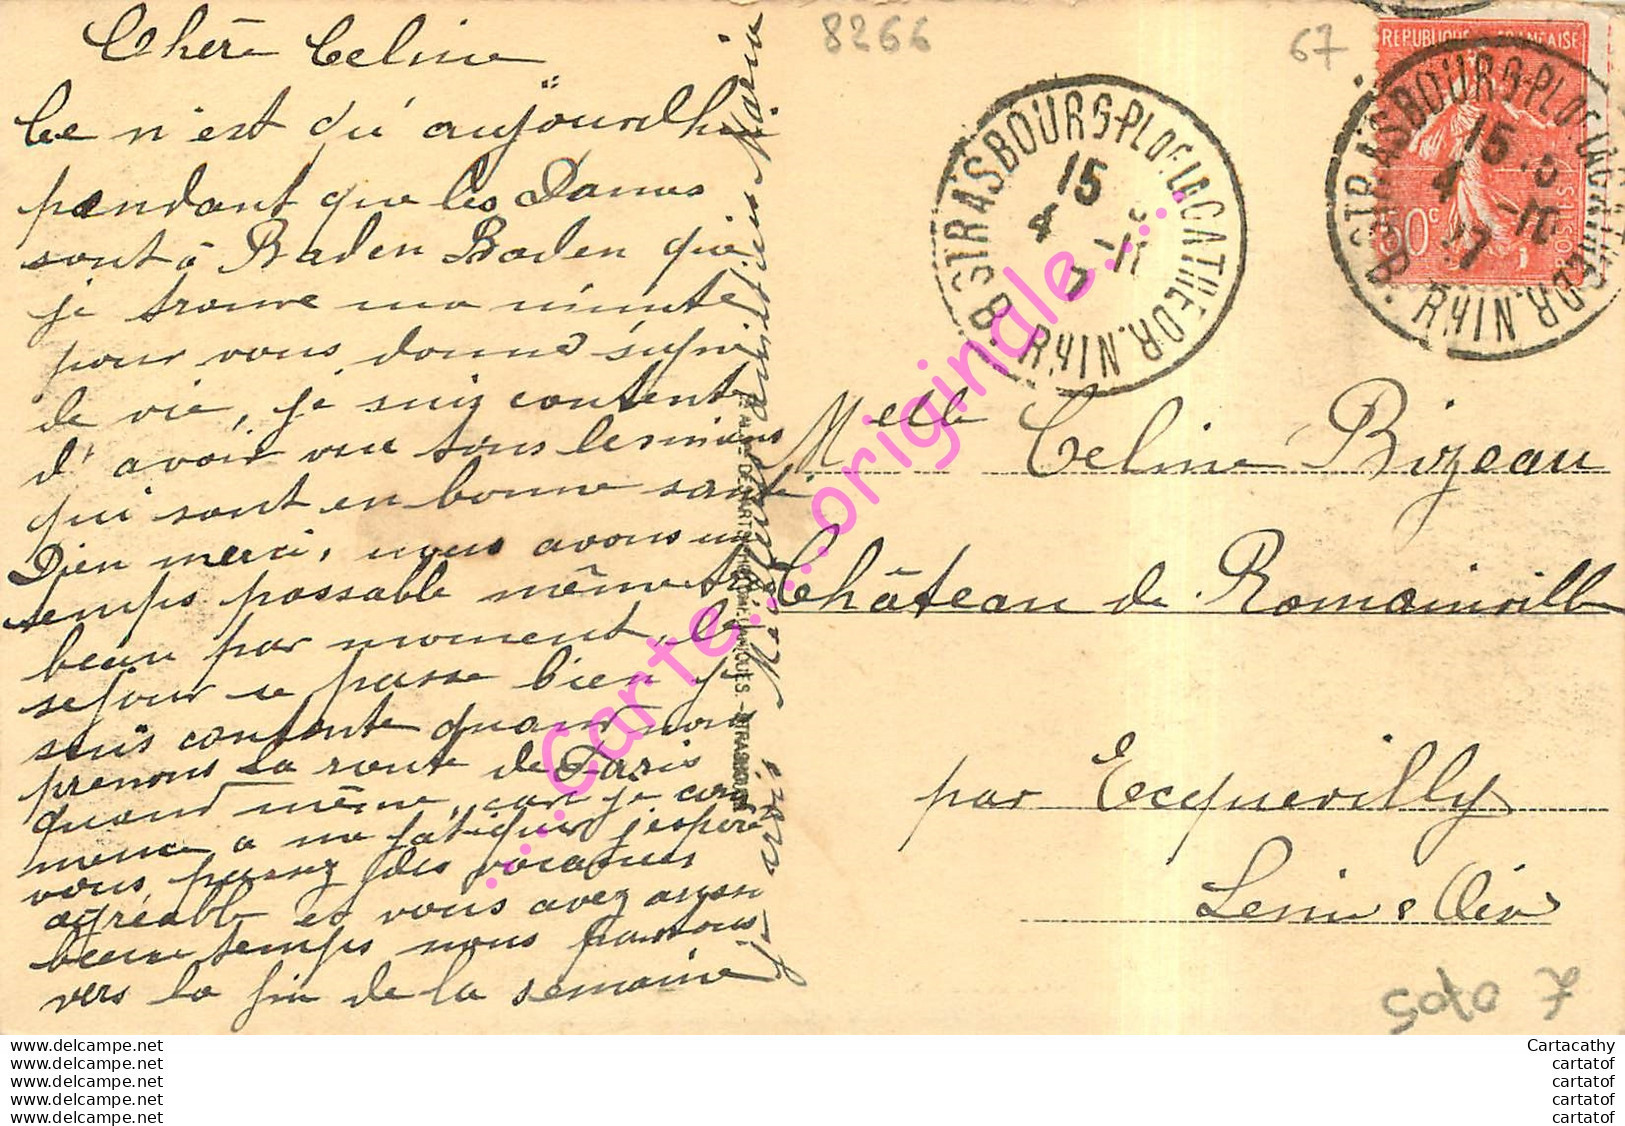 Chère Celine
Ce n'est qu'aujourdhui
pendant que les Dames
sont à Baden Baden que
je trouve ma minute
pour vous donné signe
de vie, je suis contente
d'avoir vue tous les miens
qui sont en bonne santé
Dieu merci, nous avons un
temps passable même très
beau par moment, le
sejour se passe bien je
suis contente quand nous
prenons la route de Paris
quand même, car je com
mence a me fatiguer j'espère
vous passez des vacances
agréable et vous avez aussi
beau temps nous partons
vers la fin de la semaine
Maria
8266
67
REPUBLIQUE FRANÇAISE
50c
POSTES
STRASBOURG-PL DE LA CATHEDR.
15
4 -11
B. RHIN.
STRASBOURG-PL DE LA CATHEDR.
15
4 -11
27
B. RHIN.
Melle Celine Bizeau
Château de Romainville
par Ecquevilly
Seine & Oise
...Carte....originale....
www.delcampe.net
www.delcampe.net
www.delcampe.net
www.delcampe.net
www.delcampe.net
Cartacathy
cartatof
cartatof
cartatof
cartatof